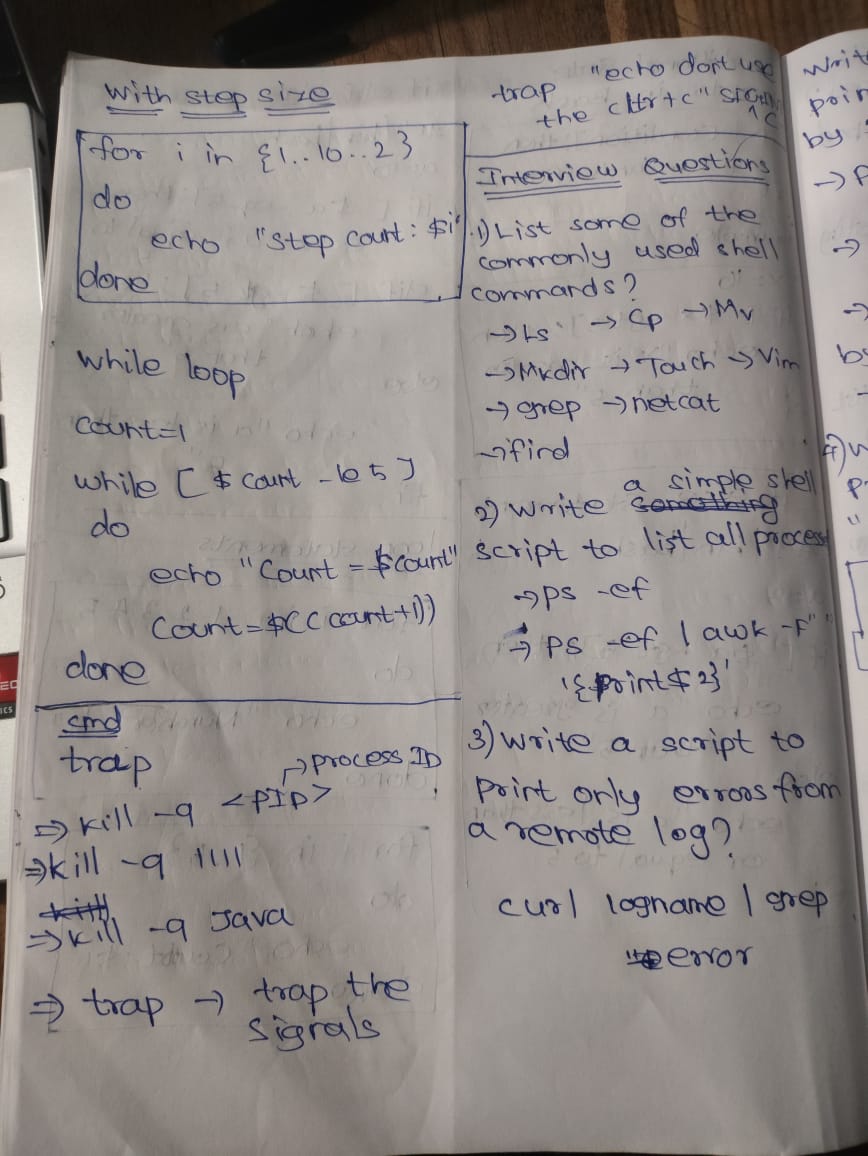 With step size
for i in {1..10..2}
do
echo "Step count: $i"
done
While loop
count=1
while [ $ count -le 5 ]
do
echo "Count = $count"
Count=$((count+1))
done
cmd
trap
→process ID
⇒ kill -9 <PID>
⇒ kill -9 1111
⇒ kill -9 Java
⇒ trap → trap the
signals
trap "echo dont use
the cltr+c"
Interview Questions
1) List some of the
commonly used shell
commands?
→Ls →Cp →Mv
→Mkdir →Touch →Vim
→grep →netcat
→find
a simple shell
2) Write something
script to list all process
→ps -ef
→ ps -ef | awk -F" "
'{print$2}'
3) Write a script to
print only errors from
a remote log?
curl logname | grep
error
Writ
poin
by
→
→
→
by
4) W
P
"